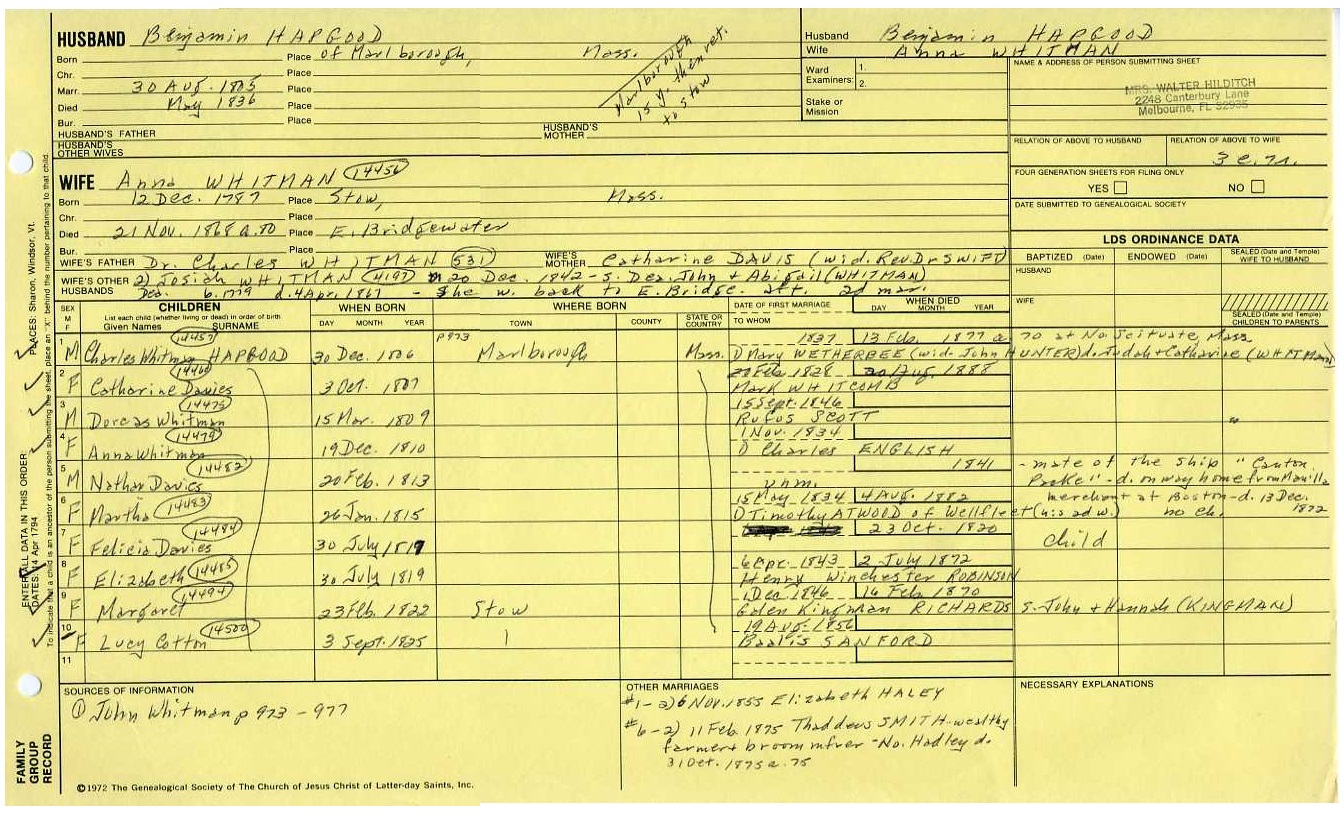 HUSBAND Benjamin HAPGOOD
Born Place of Marlborough, Mass.
Chr. Place
Marr. 30 Aug. 1805 Place
Died May 1836 Place
Bur. Place
Marlborough
15 y. then ret.
to Stow
HUSBAND'S FATHER
HUSBAND'S MOTHER
HUSBAND'S OTHER WIVES
Husband Benjamin HAPGOOD
Wife Anna WHITMAN
Ward 1.
Examiners: 2.
Stake or Mission
NAME & ADDRESS OF PERSON SUBMITTING SHEET
MRS. WALTER HILDITCH
2248 Canterbury Lane
Melbourne, FL 32935
RELATION OF ABOVE TO HUSBAND
RELATION OF ABOVE TO WIFE
3 c. 7 r.
FOUR GENERATION SHEETS FOR FILING ONLY
YES NO
DATE SUBMITTED TO GENEALOGICAL SOCIETY
WIFE Anna WHITMAN 14456
Born 12 Dec. 1787 Place Stow, Mass.
Chr. Place
Died 21 Nov. 1868 a. 80 Place E. Bridgewater
Bur. Place
WIFE'S FATHER Dr. Charles WHITMAN 531
WIFE'S MOTHER Catharine DAVIS (wid. Rev. Dr SWIFT)
WIFE'S OTHER HUSBANDS 2) Josiah WHITMAN 4197 m 20 Dec. 1842 - s. Dea. John + Abigail (WHITMAN)
Dea. b. 1779 d. 4 Apr. 1867 - She w. back to E. Bridge. aft. 2d mar.
LDS ORDINANCE DATA
BAPTIZED (Date) ENDOWED (Date) SEALED (Date and Temple) WIFE TO HUSBAND
HUSBAND
WIFE
SEALED (Date and Temple) CHILDREN TO PARENTS
SEX M F
CHILDREN
List each child (whether living or dead) in order of birth
Given Names SURNAME
WHEN BORN
DAY MONTH YEAR
WHERE BORN
TOWN COUNTY STATE OR COUNTRY
DATE OF FIRST MARRIAGE
TO WHOM
WHEN DIED
DAY MONTH YEAR
1 M Charles Whitman HAPGOOD 14457 30 Dec. 1806 p 973 Marlborough Mass. 1837 13 Feb. 1877 a 70 at No. Scituate, Mass
1) Mary WETHERBEE (wid. John HUNTER) d. Judah + Catharine (WHITMAN)
2 F Catharine Davies 14460 3 Oct. 1807 20 Feb. 1828 20 Aug. 1888
Mark WHITCOMB
3 M Dorcas Whitman 14475 15 Mar. 1809 15 Sept. 1846
Rufus SCOTT
4 F Anna Whitman 14479 19 Dec. 1810 1 Nov. 1834
1) Charles ENGLISH
5 M Nathan Davies 14482 20 Feb. 1813 1841 - mate of the ship "Canton
unm. Packe" - d. on way home from Manilla
6 F Martha 14483 26 Jan. 1815 15 May 1834 4 Aug. 1882 merchant at Boston - d. 13 Dec. 1872
1) Timothy ATWOOD of Wellfleet (his 2d w.) no ch.
7 F Felicia Davies 14484 30 July 1817 23 Oct. 1820 child
8 F Elizabeth 14485 30 July 1819 6 Apr. 1843 2 July 1872
Henry Winchester ROBINSON
9 F Margaret 14494 23 Feb. 1822 Stow 1 Dec 1846 16 Feb. 1870
Galen Kingman RICHARDS s. John + Hannah (KINGMAN)
10 F Lucy Cotton 14500 3 Sept. 1825 19 Aug. 1856
Baalis SANFORD
11
SOURCES OF INFORMATION
① John Whitman p 973 - 977
OTHER MARRIAGES
#1 - 2) 6 Nov. 1855 Elizabeth HALEY
#6 - 2) 11 Feb. 1875 Thaddeus SMITH - wealthy
farmer + broom mfrer - No. Hadley d.
31 Oct. 1875 a. 75
NECESSARY EXPLANATIONS
ENTER ALL DATA IN THIS ORDER:
DATES: 14 Apr 1794
PLACES: Sharon, Windsor, Vt.
To indicate that a child is an ancestor of the person submitting the sheet, place an "X" behind the number pertaining to that child
FAMILY GROUP RECORD
©1972 The Genealogical Society of The Church of Jesus Christ of Latter-day Saints, Inc.